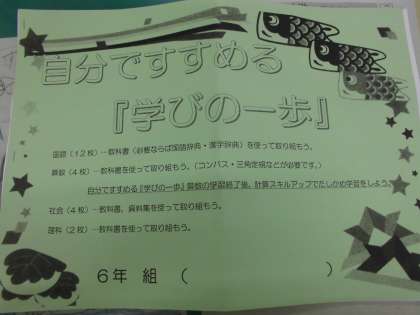 自分ですすめる
『学びの一歩』
国語（12枚）…教科書（必要ならば国語辞典・漢字辞典）を使って取り組もう。
算数（4枚）…教科書を使って取り組もう。（コンパス・三角定規などが必要です。）
自分ですすめる『学びの一歩』算数の学習終了後、計算スキルアップでたしかめ学習をしよう。
社会（4枚）…教科書、資料集を使って取り組もう。
理科（2枚）…教科書を使って取り組もう。
6年　組　（　　　　　　　　）